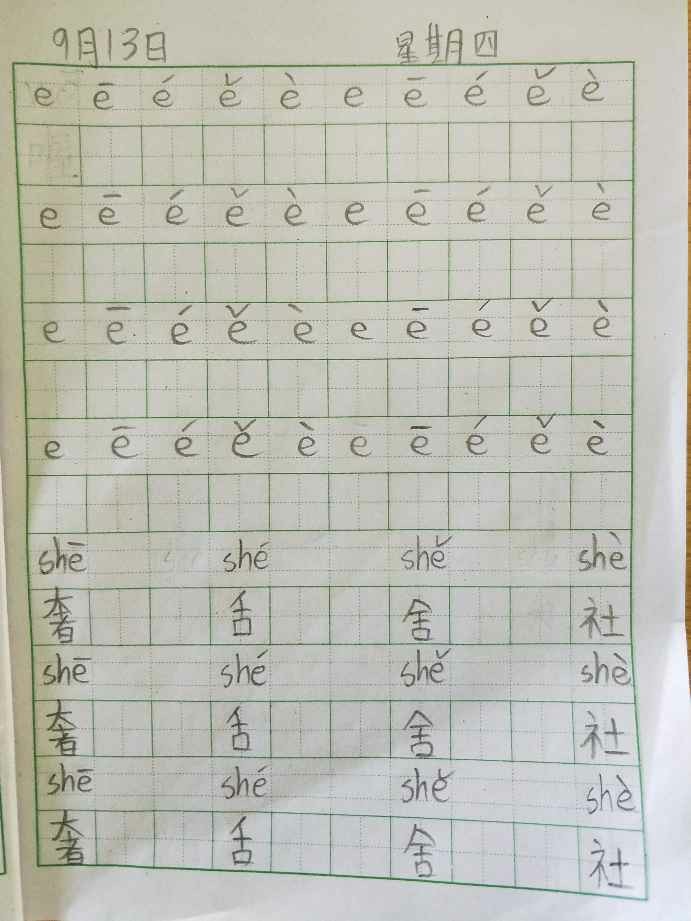 9月13日 星期四
e ē é ě è e ē é ě è
e ē é ě è e ē é ě è
e ē é ě è e ē é ě è
e ē é ě è e ē é ě è
shē shé shě shè
奢 舌 舍 社
shē shé shě shè
奢 舌 舍 社
shē shé shě shè
奢 舌 舍 社